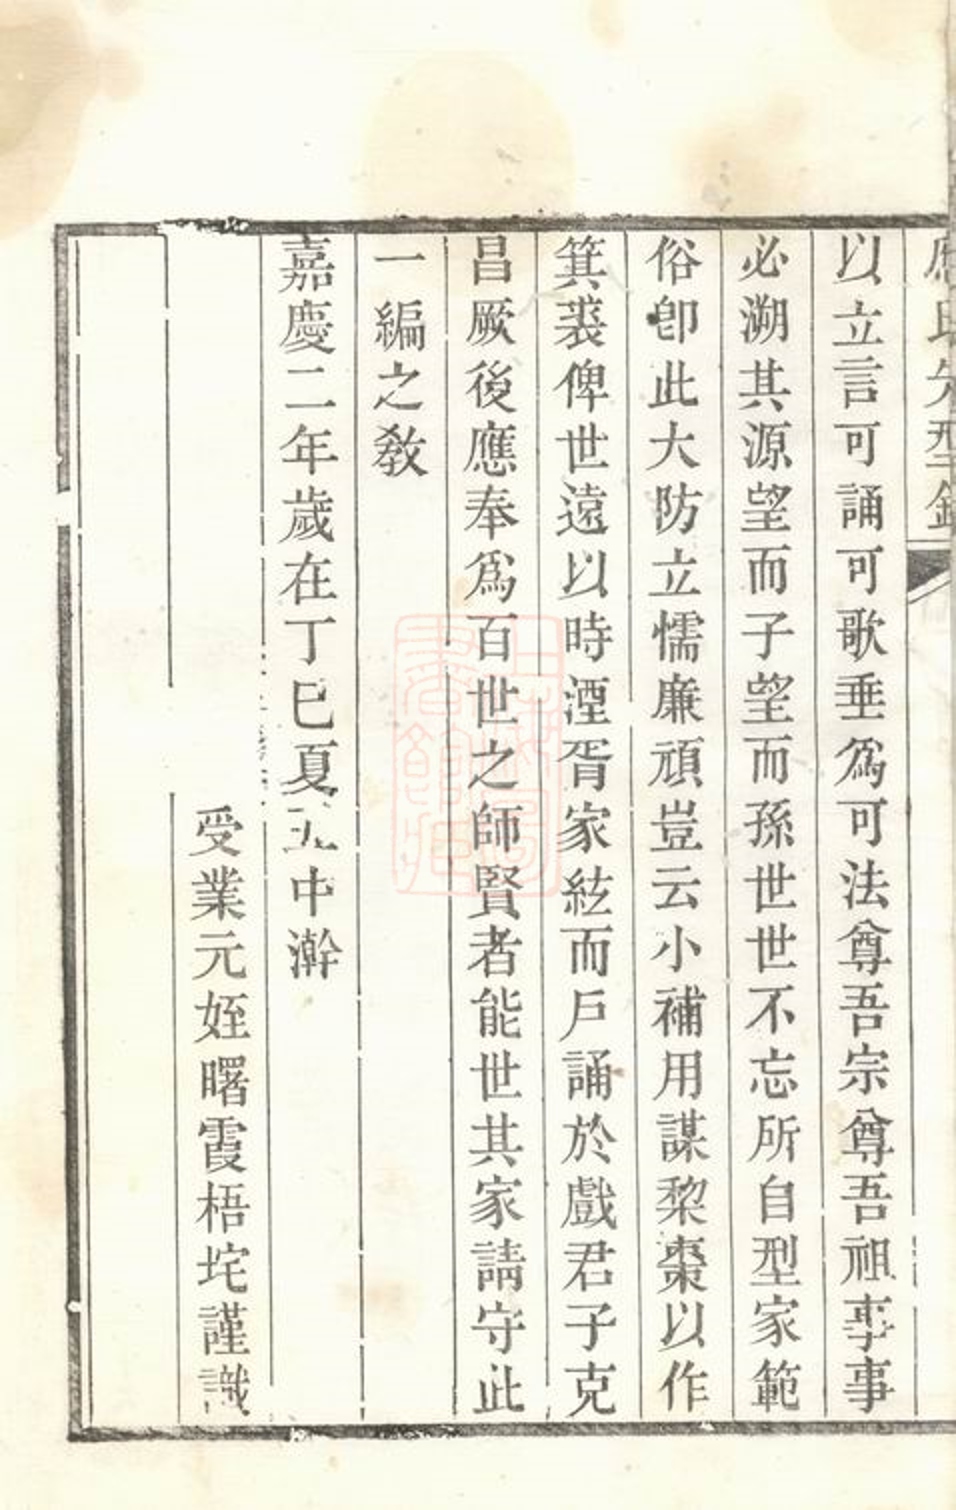 以立言可誦可歌垂為可法尊吾宗尊吾祖事事
必溯其源望而子望而孫世世不忘所自型家範
俗卽此大防立懦廉頑豈云小補用謀棃棗以作
箕裘俾世遠以時湮胥家絃而戶誦於戲君子克
昌厥後應奉爲百世之師賢者能世其家請守此
一編之教
嘉慶二年歲在丁巳夏五中澣
受業元姪曙霞梧垞謹識